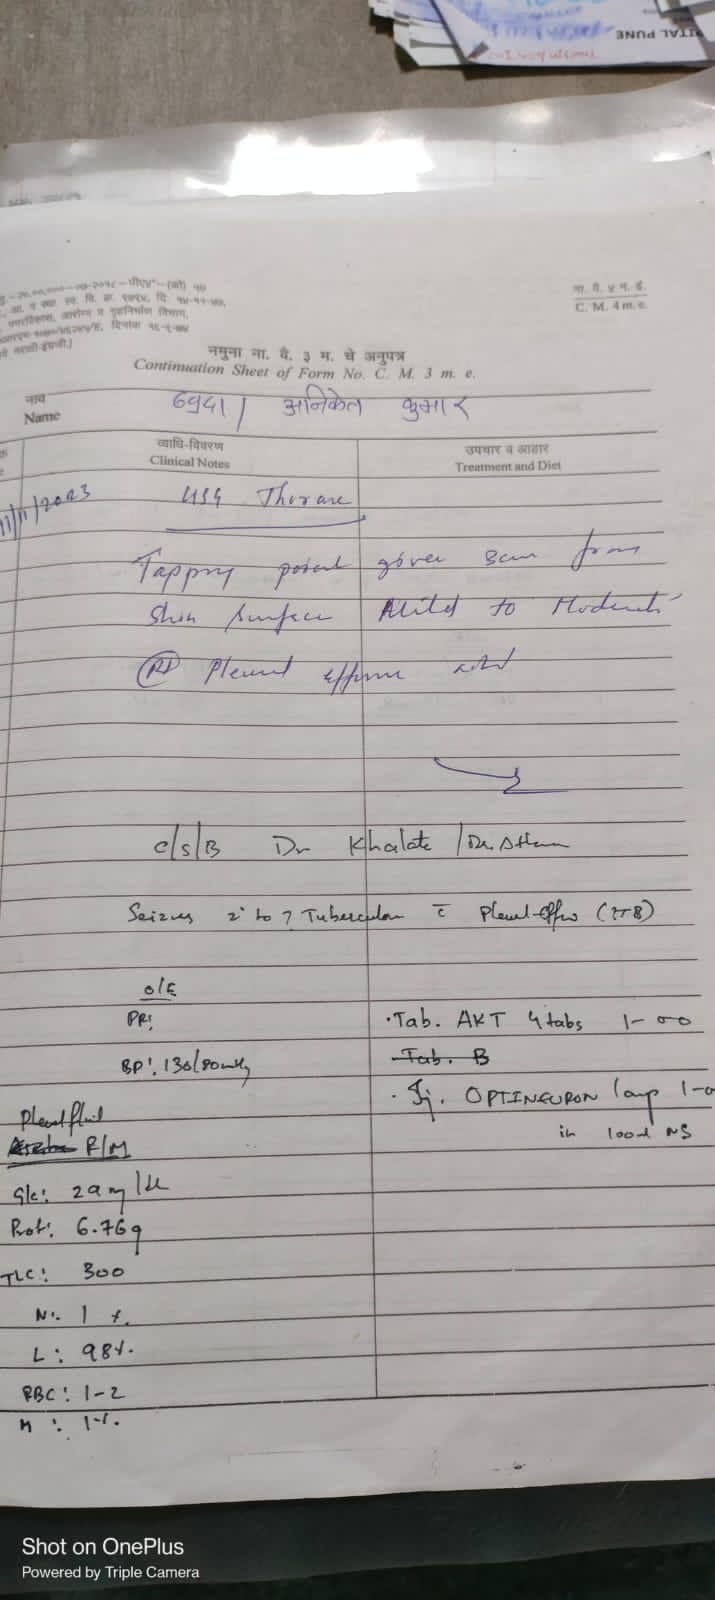 TAL PUNE
ना. वै. ४ म. ई.
C. M. 4 m. e.
नमुना ना. वै. ३ म. चे अनुपत्र
Continuation Sheet of Form No. C. M. 3 m. e.
नाव
Name
अनिकेत कुमार
व्याधि-विवरण
Clinical Notes
उपचार व आहार
Treatment and Diet
11/11/2023
USG Thorax
Tapping point given 3cm from
skin surface Mild to Moderate
Rt Pleural effusion
c/s/B Dr Khalate /Dr.
Seizures 2° to ? Tuberculoma c̄ Pleural-Effn (?TB)
O/E
PR:
BP: 130/80mmHg
• Tab. AKT 4 tabs 1-00
Tab. B
• Inj. OPTINEURON 1amp 1-0
in 100ml NS
Pleural fluid
R/M
Glc:
Prot: 6.76g
TLC: 300
N: 1 %.
L: 98%.
RBC: 1-2
M: 1%.
Shot on OnePlus
Powered by Triple Camera